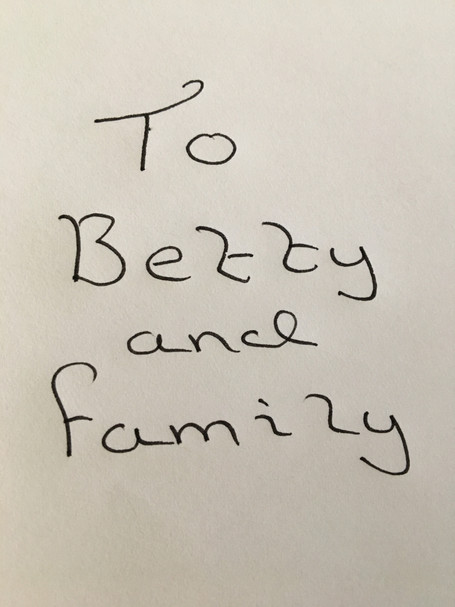 To
Betty
and
family